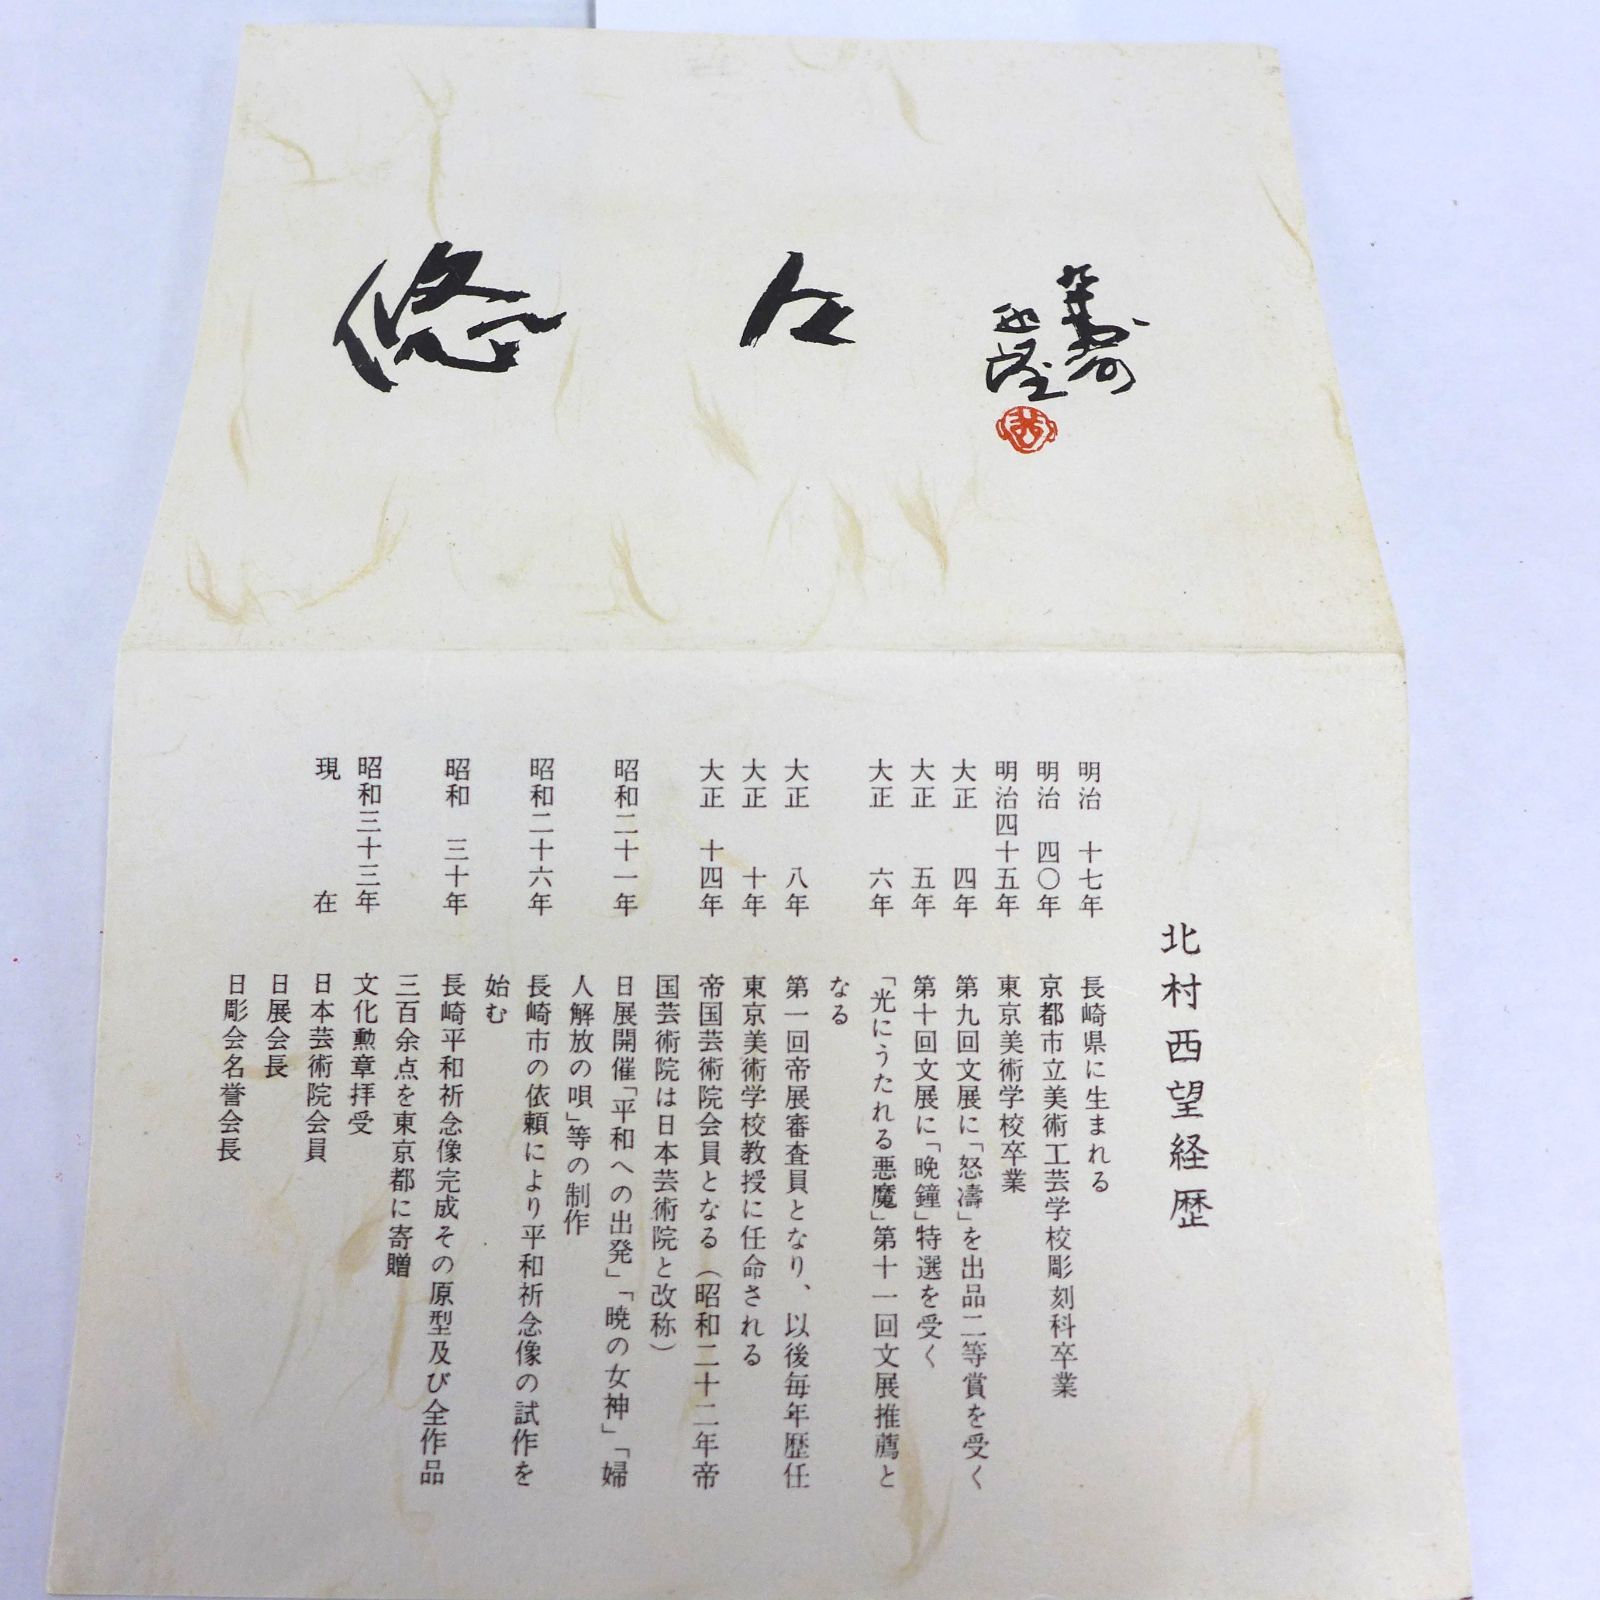 悠々
西望
北村西望経歴
明治 十七年 長崎県に生まれる
明治 四〇年 京都市立美術工芸学校彫刻科卒業
明治四十五年 東京美術学校卒業
大正 四年 第九回文展に「怒濤」を出品二等賞を受く
大正 五年 第十回文展に「晩鐘」特選を受く
大正 六年 「光にうたれる悪魔」第十一回文展推薦と
なる
大正 八年 第一回帝展審査員となり、以後毎年歴任
大正 十年 東京美術学校教授に任命される
大正 十四年 帝国芸術院会員となる（昭和二十二年帝
国芸術院は日本芸術院と改称）
昭和二十一年 日展開催「平和への出発」「暁の女神」「婦
人解放の唄」等の制作
昭和二十六年 長崎市の依頼により平和祈念像の試作を
始む
昭和 三十年 長崎平和祈念像完成その原型及び全作品
三百余点を東京都に寄贈
昭和三十三年 文化勲章拝受
現在 日本芸術院会員
日展会長
日彫会名誉会長